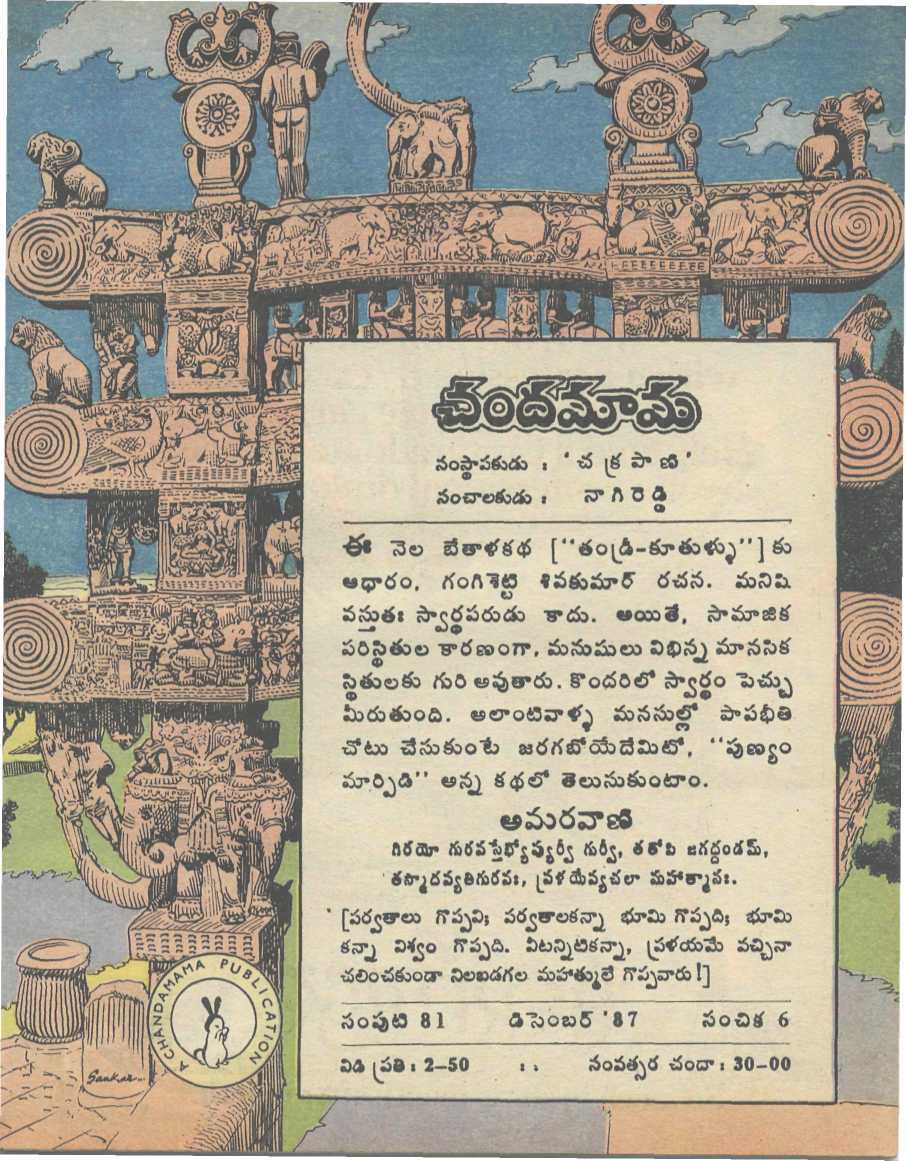 చందమామ
సంస్థాపకుడు : ‘చక్రపాణి’
సంచాలకుడు : నాగిరెడ్డి
ఈ నెల బేతాళకథ [‘‘తండ్రీ-కూతుళ్ళు’’] కు
ఆధారం, గంగిశెట్టి శివకుమార్ రచన. మనిషి
వస్తుతః స్వార్థపరుడు కాదు. అయితే, సామాజిక
పరిస్థితుల కారణంగా, మనుషులు విభిన్న మానసిక
స్థితులకు గురి అవుతారు. కొందరిలో స్వార్థం పెచ్చు
మీరుతుంది. అలాంటివాళ్ళ మనసుల్లో పాపభీతి
చోటు చేసుకుంటే జరగబోయేదేమిటో, ‘‘పుణ్యం
మార్పిడి’’ అన్న కథలో తెలుసుకుంటాం.
అమరవాణి
గిరయో గురవస్తేభ్యోప్యుర్వీ గుర్వీ, తతోపి జగదండమ్,
తస్మాదప్యతిగురవః, ప్రళయేప్యచలా మహాత్మానః.
[పర్వతాలు గొప్పవి; పర్వతాలకన్నా భూమి గొప్పది; భూమి
కన్నా విశ్వం గొప్పది. వీటన్నిటికన్నా, ప్రళయమే వచ్చినా
చలించకుండా నిలబడగల మహాత్ములే గొప్పవారు!]
సంపుటి 81 డిసెంబర్ '87 సంచిక 6
విడి ప్రతి : 2–50 :: సంవత్సర చందా : 30–00
A CHANDAMAMA PUBLICATION
Sankar...